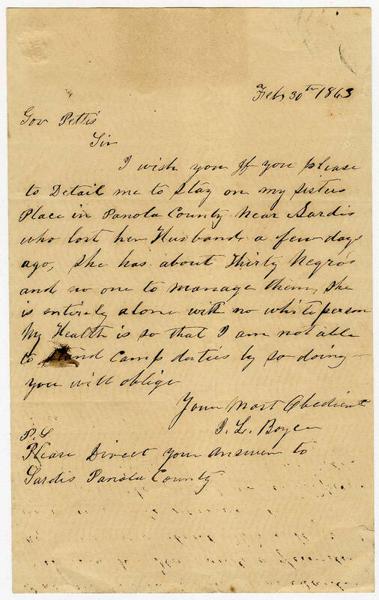 Feb 30th 1863
Gov Pettis
Sir
I wish you If you please
to Detail me to Stay on my Sisters
Place in Panola County Near Sardis
who lost her Husband a few days
ago, She has about Thirty Negros
and no one to manage them, She
is entirely alone with no white person
My Health is so that I am not able
to Stand Camp duties by so doing
you will oblige
Your Most Obedient
J. L. Boyce
P.S.
Please Direct your Answer to
Sardis Panola County